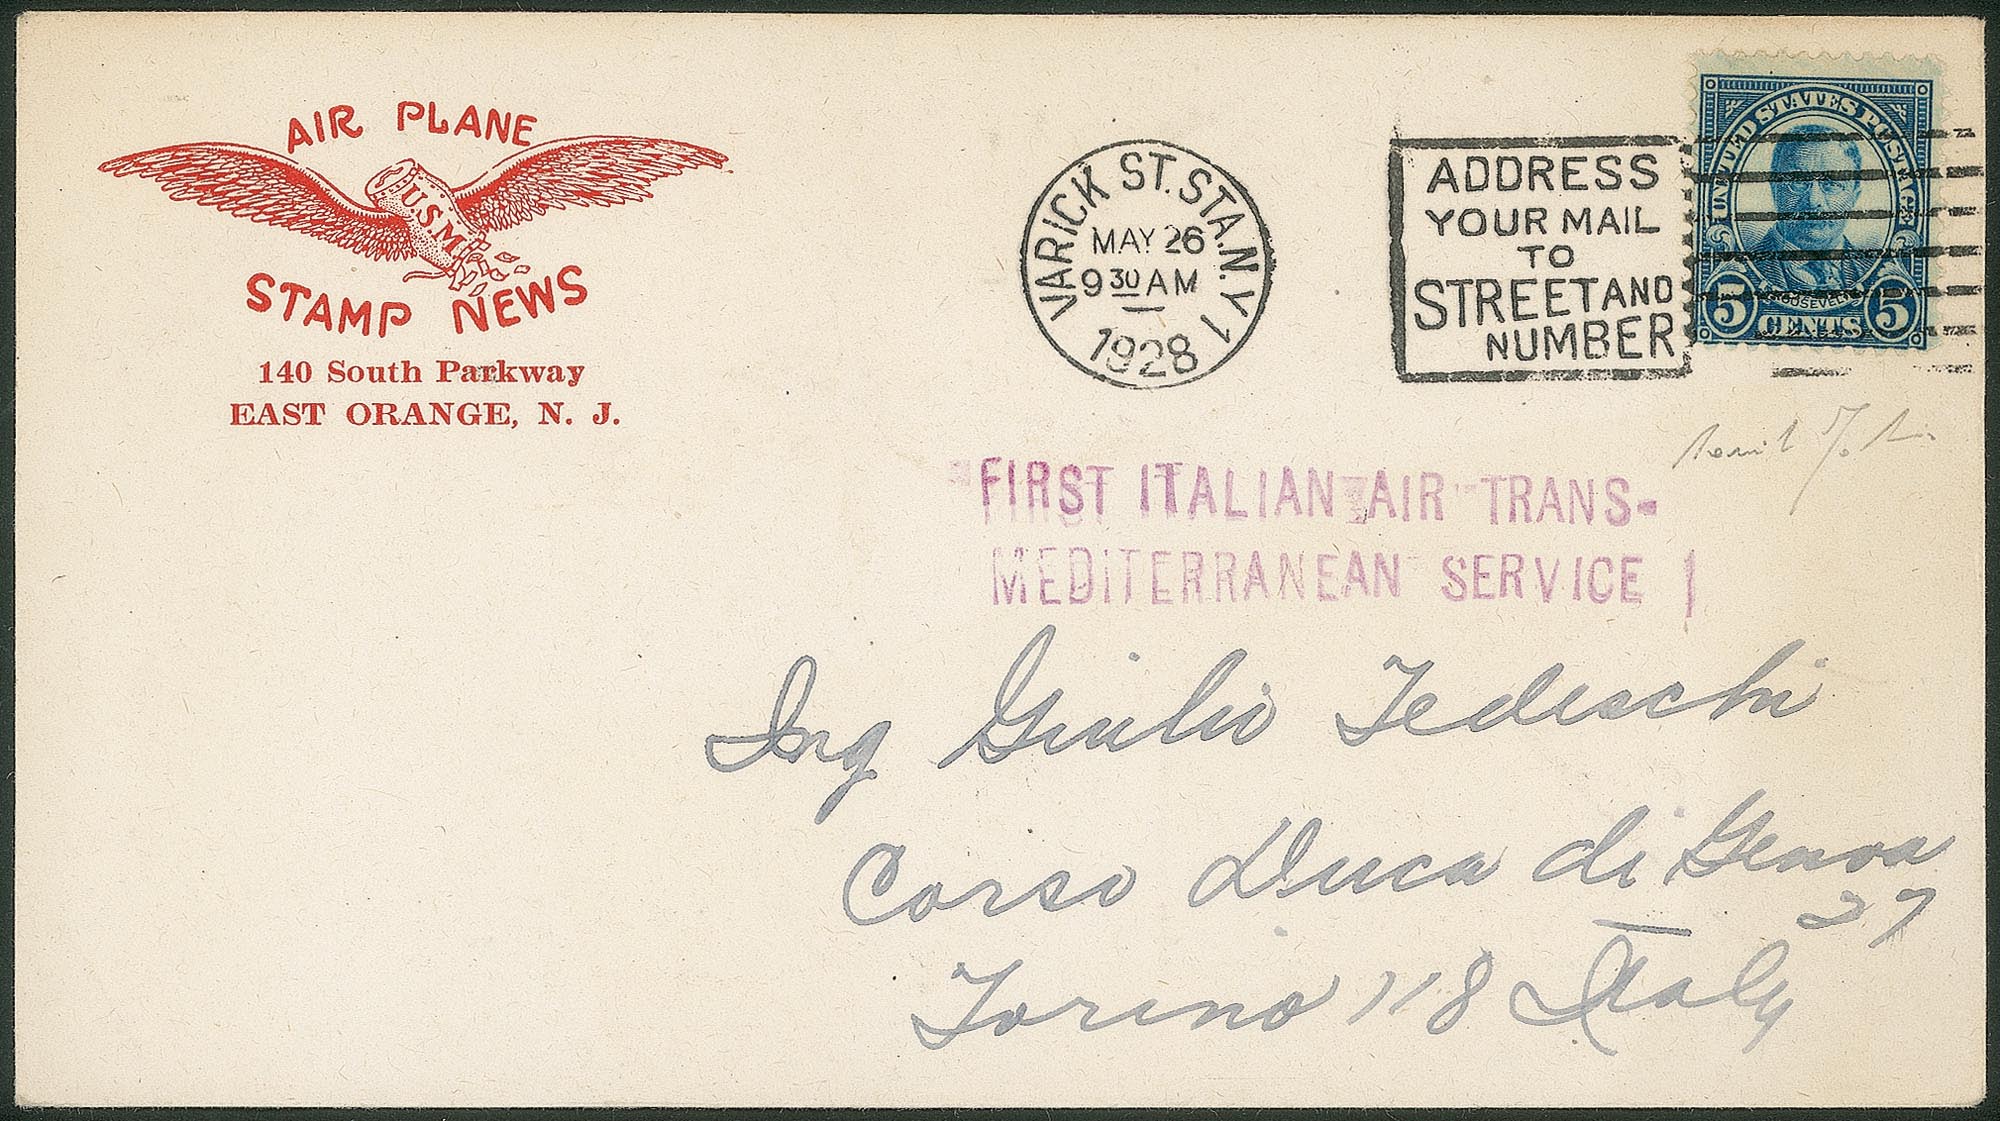 AIR PLANE
U.S.M
STAMP NEWS
140 South Parkway
EAST ORANGE, N. J.
VARICK ST. STA. N.Y. 1
MAY 26
9 30 AM
1928
ADDRESS
YOUR MAIL
TO
STREET AND
NUMBER
UNITED STATES POSTAGE
ROOSEVELT
5 CENTS 5
FIRST ITALIAN AIR TRANS-
MEDITERRANEAN SERVICE
Ing Giulio Tedeschi
Corso Duca di Genova
27
Torino 118 Italy